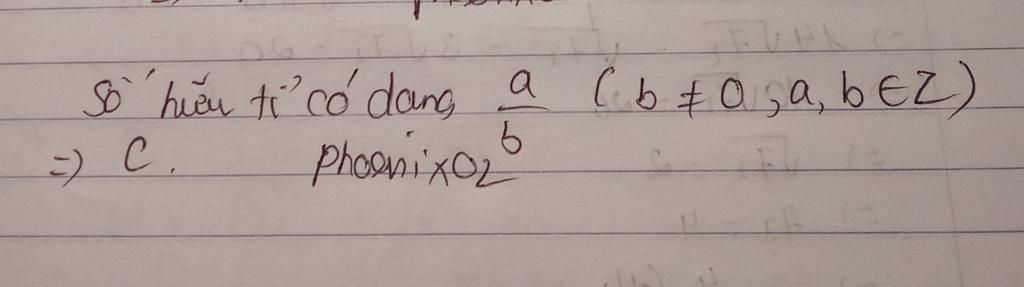 Số hữu tỉ có dạng a/b (b ≠ 0, a, b ∈ Z)
=> C. PhoenixO2